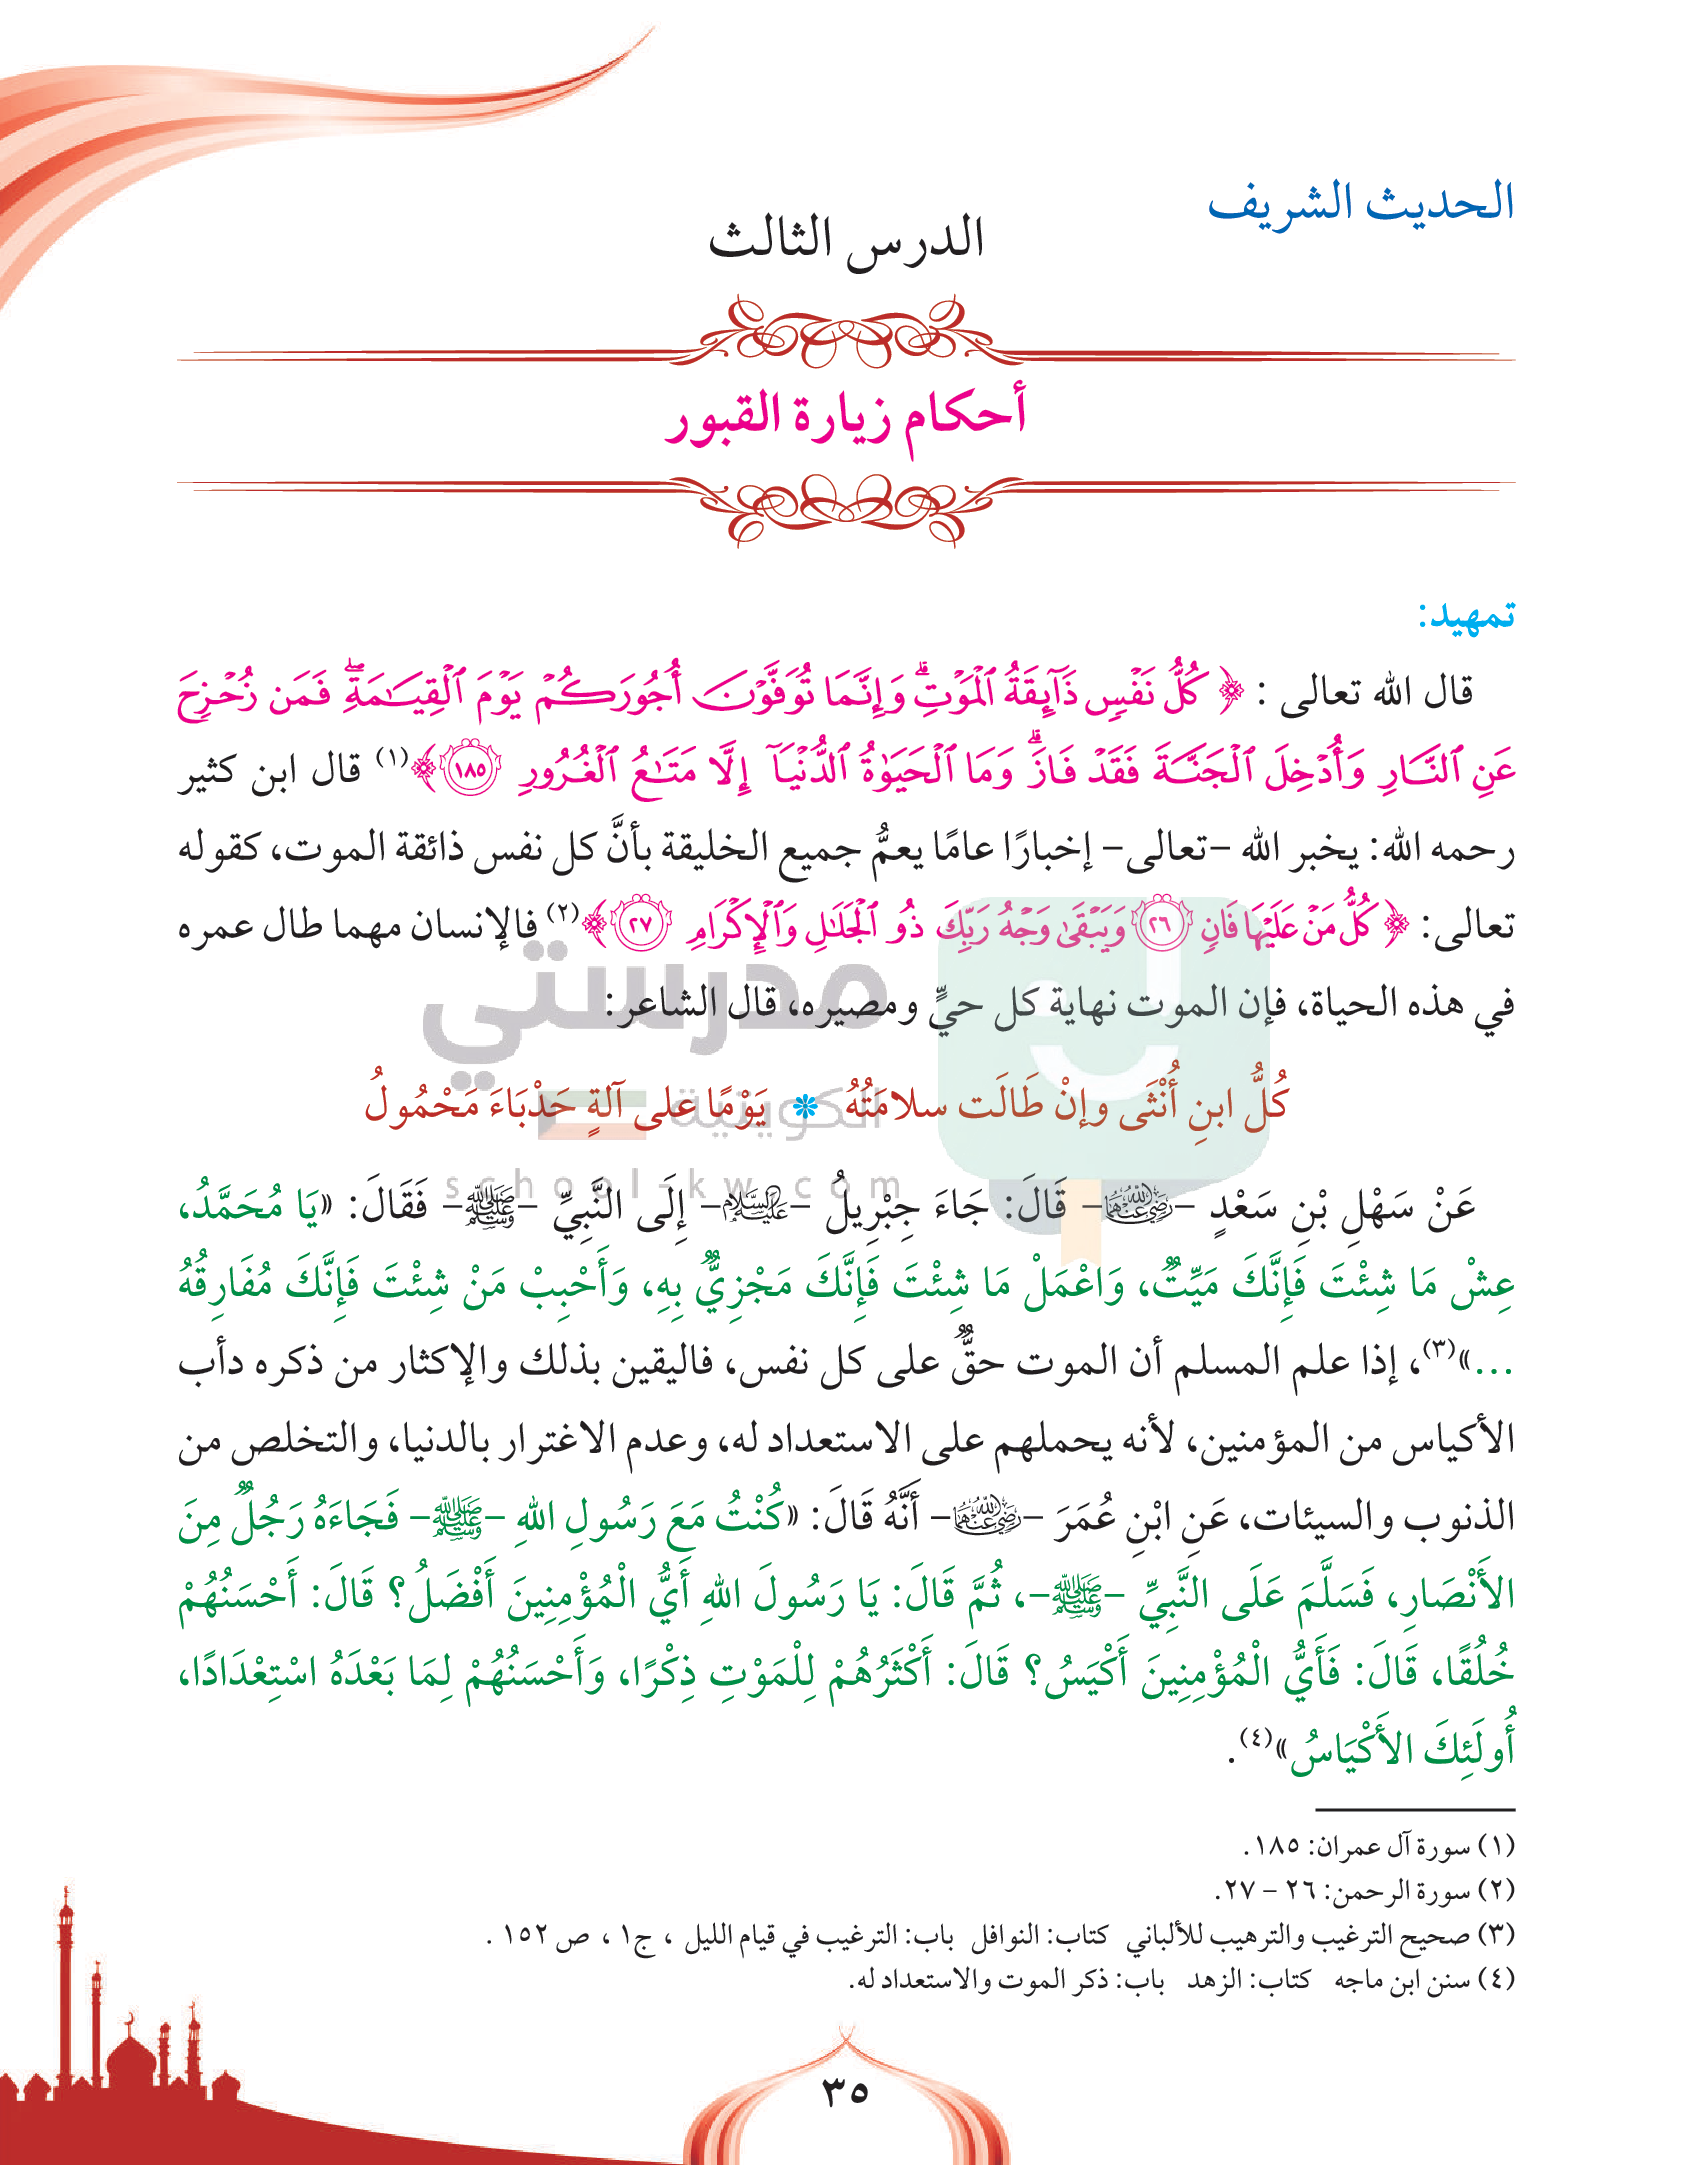 الحديث الشريف
الدرس الثالث
أحكام زيارة القبور
تمهيد:
قال الله تعالى : ﴿ كُلُّ نَفْسٍ ذَآئِقَةُ ٱلْمَوْتِۗ وَإِنَّمَا تُوَفَّوْنَ أُجُورَكُمْ يَوْمَ ٱلْقِيَـٰمَةِۖ فَمَن زُحْزِحَ
عَنِ ٱلنَّارِ وَأُدْخِلَ ٱلْجَنَّةَ فَقَدْ فَازَۗ وَمَا ٱلْحَيَوٰةُ ٱلدُّنْيَآ إِلَّا مَتَـٰعُ ٱلْغُرُورِ ١٨٥﴾(١) قال ابن كثير
رحمه الله: يخبر الله –تعالى– إخبارًا عامًا يعمُّ جميع الخليقة بأنَّ كل نفس ذائقة الموت، كقوله
تعالى: ﴿ كُلُّ مَنْ عَلَيْهَا فَانٍ ٢٦ وَيَبْقَىٰ وَجْهُ رَبِّكَ ذُو ٱلْجَلَـٰلِ وَٱلْإِكْرَامِ ٢٧﴾(٢) فالإنسان مهما طال عمره
في هذه الحياة، فإن الموت نهاية كل حيٍّ ومصيره، قال الشاعر:
كُلُّ ابنِ أُنْثَى وإنْ طَالَت سلامَتُهُ * يَوْمًا على آلةٍ حَدْبَاءَ مَحْمُولُ
عَنْ سَهْلِ بْنِ سَعْدٍ –رضي الله عنهما– قَالَ: جَاءَ جِبْرِيلُ –عليه السلام– إِلَى النَّبِيِّ –ﷺ– فَقَالَ: «يَا مُحَمَّدُ،
عِشْ مَا شِئْتَ فَإِنَّكَ مَيِّتٌ، وَاعْمَلْ مَا شِئْتَ فَإِنَّكَ مَجْزِيٌّ بِهِ، وَأَحْبِبْ مَنْ شِئْتَ فَإِنَّكَ مُفَارِقُهُ
...»(٣)، إذا علم المسلم أن الموت حقٌّ على كل نفس، فاليقين بذلك والإكثار من ذكره دأب
الأكياس من المؤمنين، لأنه يحملهم على الاستعداد له، وعدم الاغترار بالدنيا، والتخلص من
الذنوب والسيئات، عَنِ ابْنِ عُمَرَ –رضي الله عنهما– أَنَّهُ قَالَ: «كُنْتُ مَعَ رَسُولِ اللهِ –ﷺ– فَجَاءَهُ رَجُلٌ مِنَ
الأَنْصَارِ، فَسَلَّمَ عَلَى النَّبِيِّ –ﷺ–، ثُمَّ قَالَ: يَا رَسُولَ اللهِ أَيُّ الْمُؤْمِنِينَ أَفْضَلُ؟ قَالَ: أَحْسَنُهُمْ
خُلُقًا، قَالَ: فَأَيُّ الْمُؤْمِنِينَ أَكْيَسُ؟ قَالَ: أَكْثَرُهُمْ لِلْمَوْتِ ذِكْرًا، وَأَحْسَنُهُمْ لِمَا بَعْدَهُ اسْتِعْدَادًا،
أُولَئِكَ الأَكْيَاسُ»(٤).
(١) سورة آل عمران: ١٨٥.
(٢) سورة الرحمن: ٢٦ – ٢٧.
(٣) صحيح الترغيب والترهيب للألباني كتاب: النوافل باب: الترغيب في قيام الليل ، ج١ ، ص ١٥٢ .
(٤) سنن ابن ماجه كتاب: الزهد باب: ذكر الموت والاستعداد له.
٣٥
مدرستي
الكويتية
school-kw.com